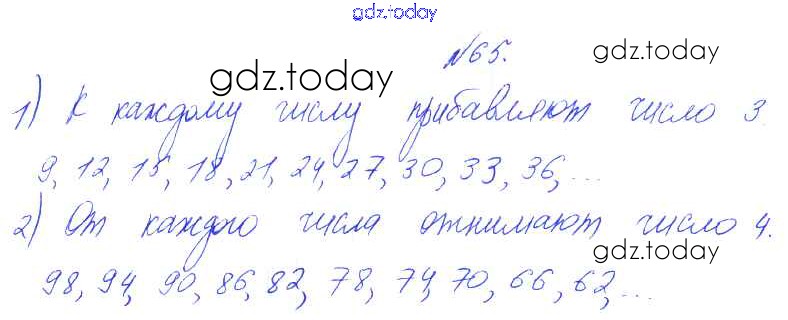 gdz.today
№65.
gdz.today
gdz.today
1) К каждому числу прибавляют число 3.
9, 12, 15, 18, 21, 24, 27, 30, 33, 36, ...
2) От каждого числа отнимают число 4.
gdz.today
98, 94, 90, 86, 82, 78, 74, 70, 66, 62, ...